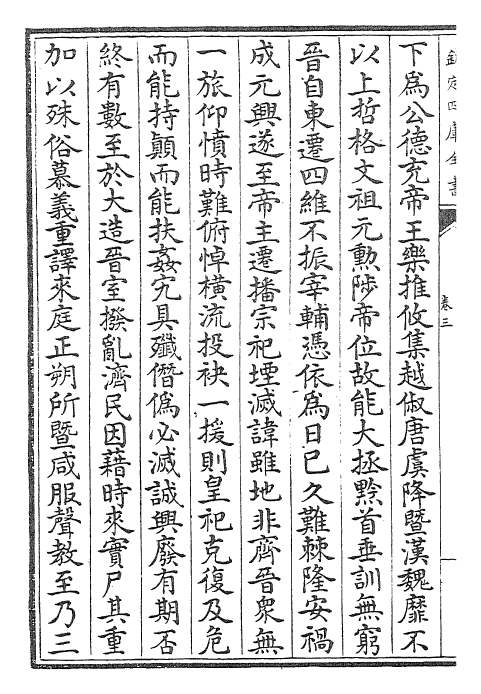 欽定四庫全書
卷三
下爲公德充帝王樂推攸集越俶唐虞降暨漢魏靡不
以上哲格文祖元勲陟帝位故能大拯黔首垂訓無窮
晉自東遷四維不振宰輔憑依爲日已久難棘隆安禍
成元興遂至帝主遷播宗祀堙滅諱雖地非齊晉衆無
一旅仰憤時難俯悼横流投袂一援則皇祀克復及危
而能持顛而能扶姦宄具殲僭僞必滅誠興廢有期否
終有數至於大造晉室撥亂濟民因藉時來實尸其重
加以殊俗慕義重譯來庭正朔所暨咸服聲教至乃三